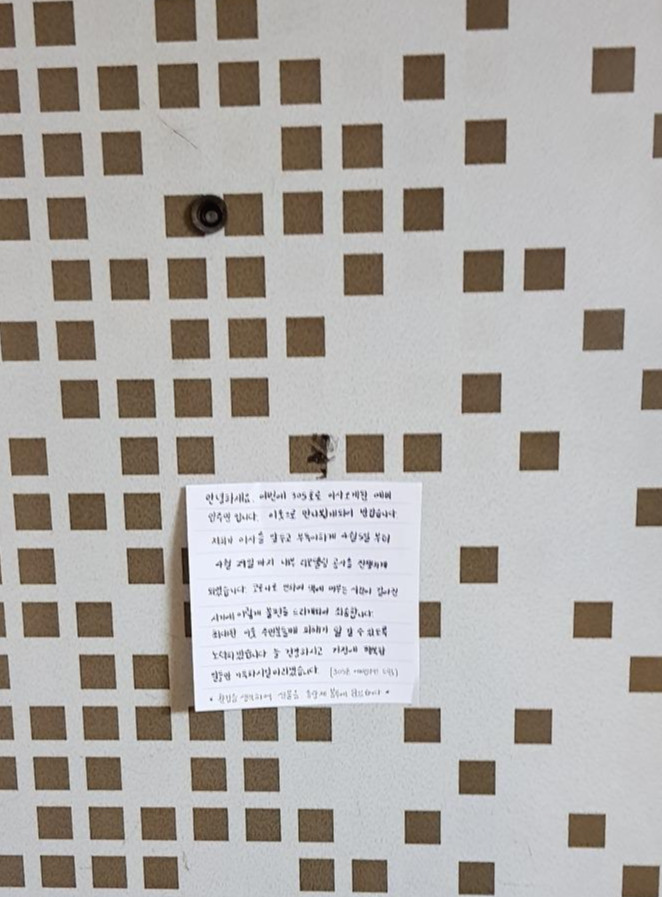 안녕하세요. 이번에 305호로 이사오게된 예비
입주민 입니다. 이웃으로 만나뵙게되어 반갑습니다
저희가 이사를 앞두고 부득이하게 4월5일 부터
4월 29일 까지 내부 리모델링 공사를 진행하게
되었습니다. 코로나로 인하여 댁에 머무는 시간이 길어진
시기에 이렇게 불편을 드리게되어 죄송합니다.
최대한 이웃 주민분들께 피해가 덜 갈 수 있도록
노력하겠습니다 늘 건강하시고 가정에 행복한
일들만 가득하시길 바라겠습니다. (305호 예비입주민 드림)
* 환경을 생각하여 선물은 종량제 봉투에 담았습니다 *